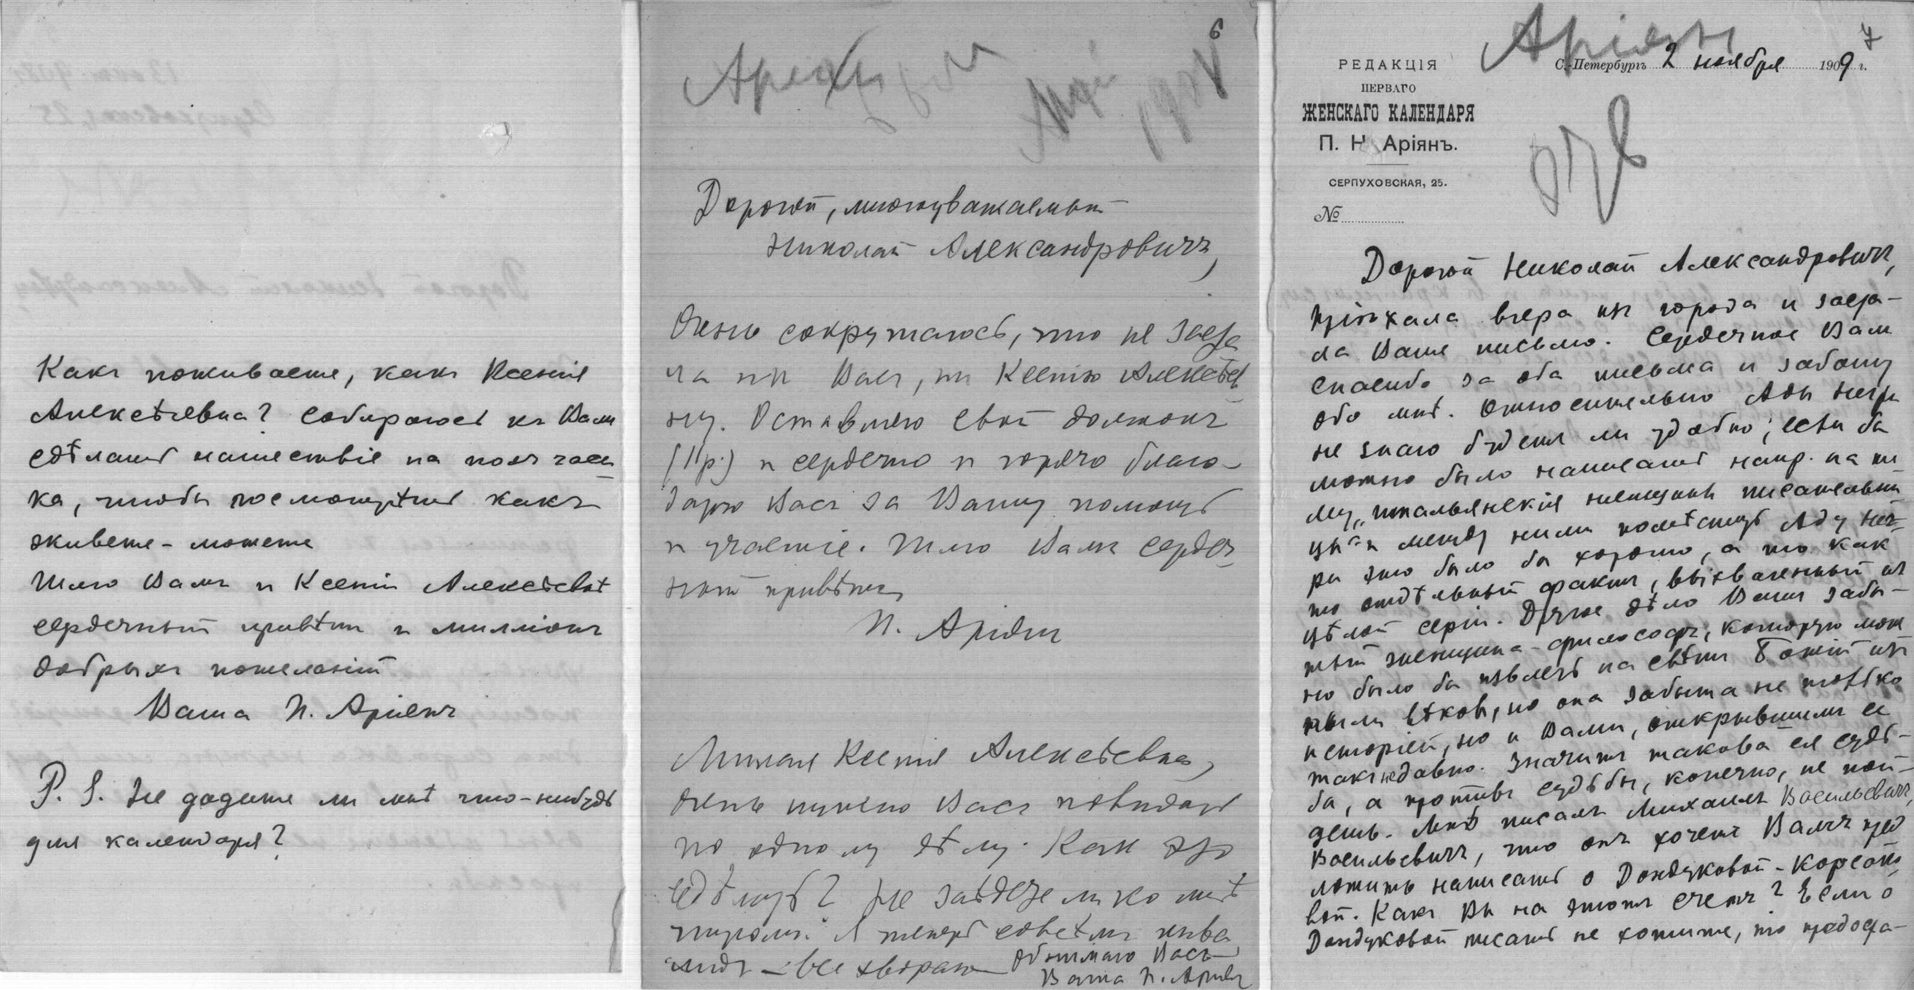 Какъ поживаете, какъ Ксенія
Алексѣевна? Собираюсь къ Вамъ
сдѣлать нашествіе на полъ часи
ка, чтобы посмотрѣть какъ
живете-можете
Шлю Вамъ и Ксеніи Алексѣевнѣ
сердечный привѣтъ и милліонъ
добрыхъ пожеланій
Ваша П. Аріянъ
P. S. Не дадите ли мнѣ что-нибудь
для календаря?
6
Май
Дорогой, многоуважаемый
Николай Александровичъ,
Очень сокрушаюсь, что не заста
ла ни Васъ, ни Ксенію Алексѣев
ну. Оставляю свой должокъ
(11р.) и сердечно и горячо благо-
дарю Васъ за Вашу помощь
и участіе. Шлю Вамъ сердеч
ный привѣтъ
П. Аріянъ
Милая Ксенія Алексѣевна,
Очень нужно Васъ повидать
по одному дѣлу. Какъ это
сдѣлать? Не заѣдете ли ко мнѣ
Я теперь совсѣмъ инва
лидъ – все хвораю Обнимаю Васъ
Ваша П. Аріянъ
Аріянъ
7
РЕДАКЦІЯ
ПЕРВАГО
ЖЕНСКАГО КАЛЕНДАРЯ
П. Н. Аріянъ.
СЕРПУХОВСКАЯ, 25.
№
С.-Петербургъ 2 ноября 1909 г.
Дорогой Николай Александровичъ,
Пріѣхала вчера изъ города и заста-
ла Ваше письмо. Сердечное Вам
спасибо за оба письма и заботу
обо мнѣ. Относительно Ады Негри
не знаю будетъ ли удобно; если бы
можно было написать напр. на те
му „итальянскія женщины писательни
цы“ и между ними помѣстить Аду Нег-
ри это было бы хорошо, а то какъ
то отдѣльный фактъ, выхваченный изъ
цѣлой серіи. Другое дѣло Ваша забы-
тый женщина-философъ, которую мож
но было бы извлечь на свѣтъ Божій изъ
пыли вѣковъ, но она забыта не только
исторіей, но и Вами, открывшимъ ее
такъ недавно. Значитъ такова ея судь-
ба, а противъ судьбы, конечно, не пой-
дешь. Мнѣ писалъ Михаилъ Васильевичъ,
Васильевичъ, что онъ хочетъ Вамъ пред
ложить написать о Дондуковой-Корсако
вой. Какъ Вы на этотъ счетъ? Если о
Дондуковой писать не хотите, то предоста-